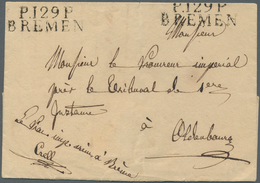 P.129.P.
BREMEN
P.129.P.
BREMEN
Monsieur
Monsieur le Procureur impérial
près le Tribunal de 1ere
Instance
à
Oldenbourg
Le Proc. imp. à Brême